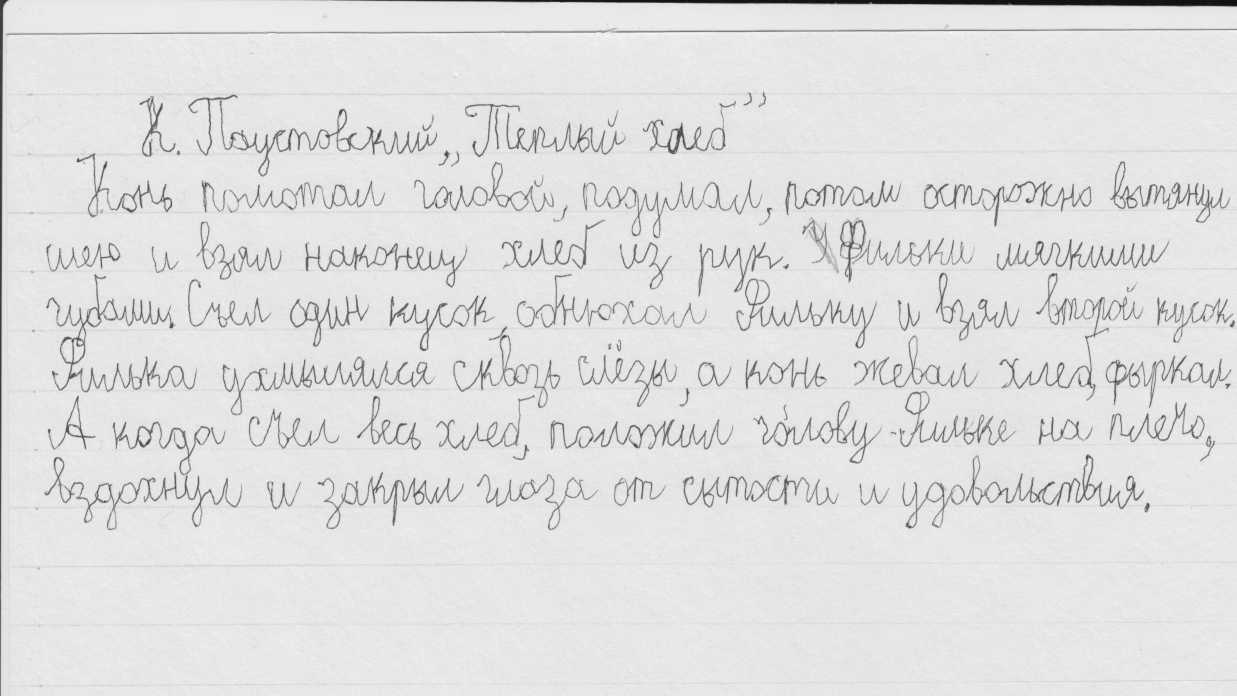 К. Паустовский „Теплый хлеб”
Конь помотал головой, подумал, потом осторожно вытянул
шею и взял наконец хлеб из рук. Фильки мягкими
губами. Съел один кусок, обнюхал Фильку и взял второй кусок.
Филька ухмылялся сквозь слёзы, а конь жевал хлеб, фыркал.
А когда съел весь хлеб, положил голову Фильке на плечо,
вздохнул и закрыл глаза от сытости и удовольствия.